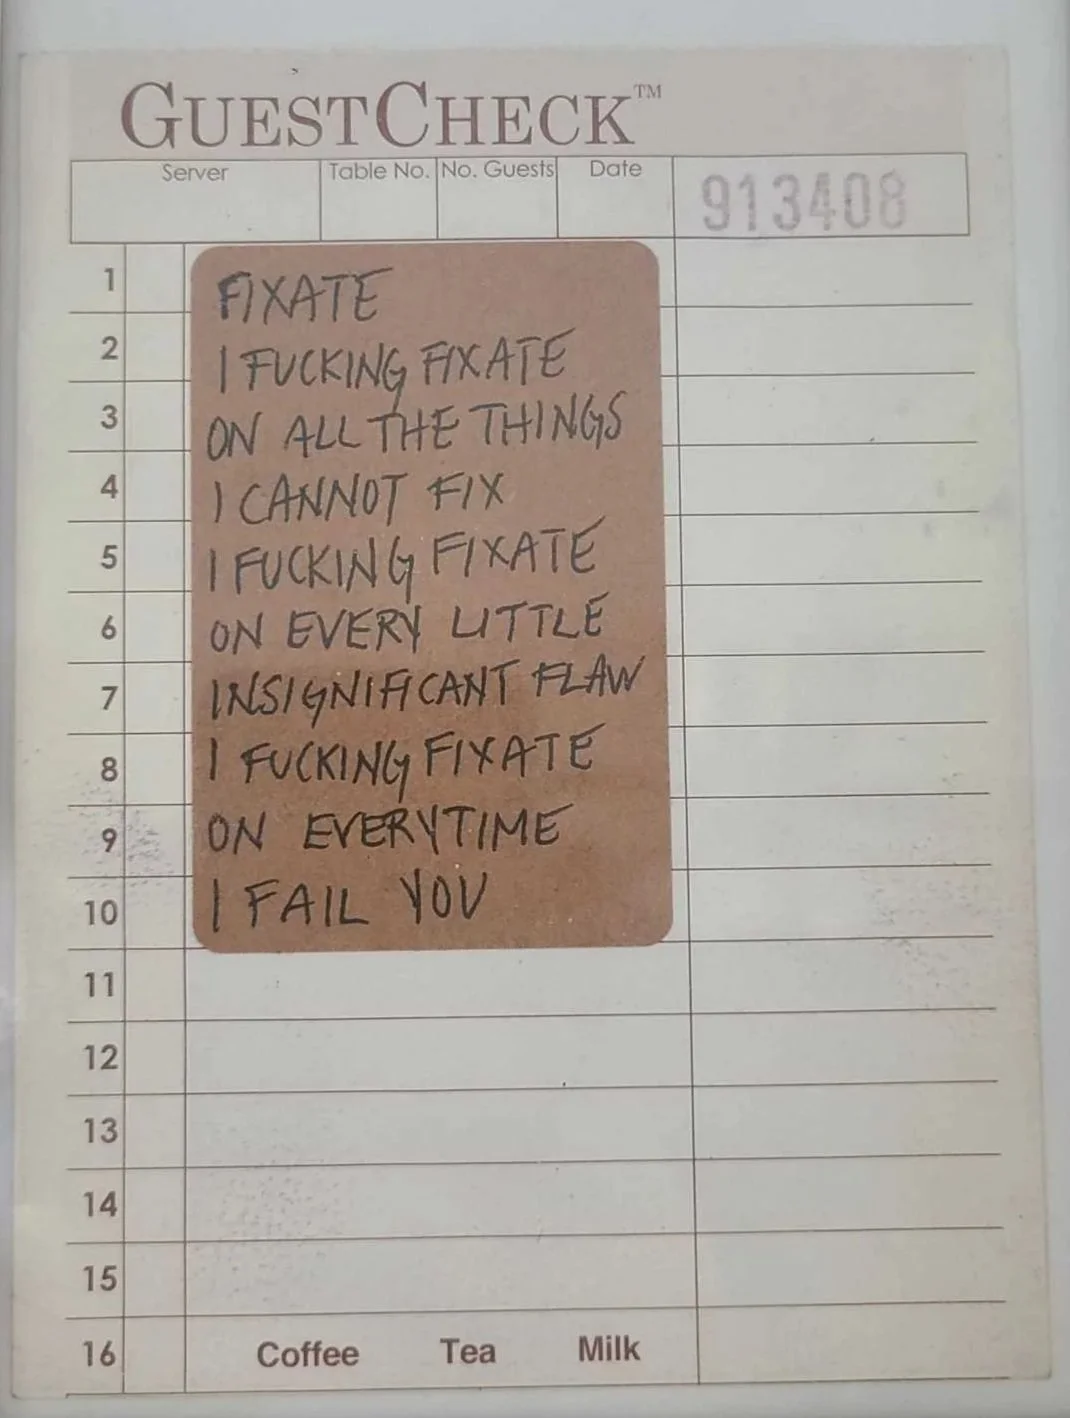 GUESTCHECK™
Server Table No. No. Guests Date 913408
1 FIXATE
2 I FUCKING FIXATE
3 ON ALL THE THINGS
4 I CANNOT FIX
5 I FUCKING FIXATE
6 ON EVERY LITTLE
7 INSIGNIFICANT FLAW
8 I FUCKING FIXATE
9 ON EVERYTIME
10 I FAIL YOU
11
12
13
14
15
16 Coffee Tea Milk